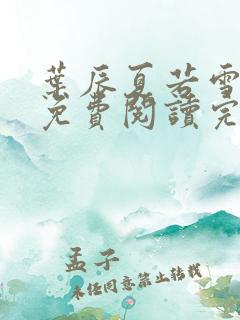 葉辰夏若雪
免費閱讀完
孟子
未經同意禁止轉載